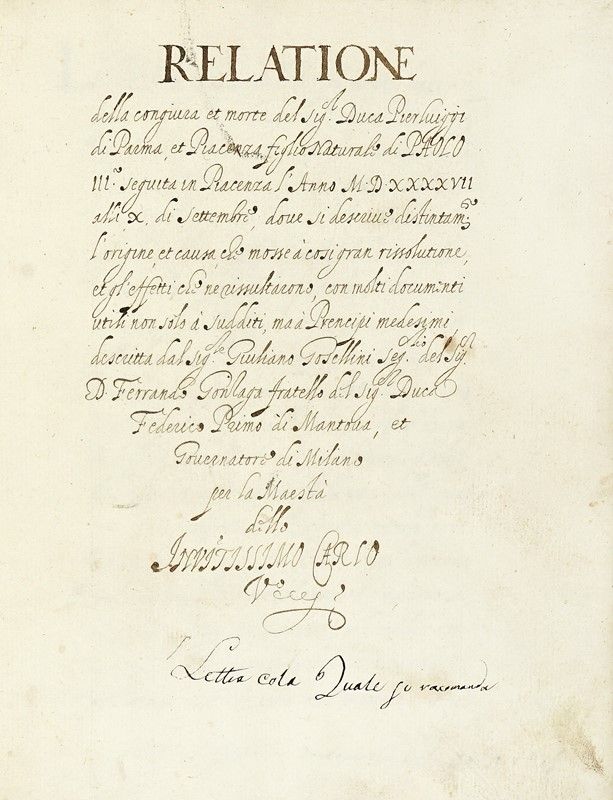 RELATIONE
della congiura et morte del sig.r Duca Pierluiggi
di Parma, et Piacenza figlio Naturale di PAOLO
III.º seguita in Piacenza l'Anno M·D·XXXXVII
alli X. di Settembre, dove si descrive distintam.te
l'origine, et causa, che mosse à così gran rissolutione,
et gl'effetti, che ne rissultarono, con molti documenti
utili non solo à sudditi, ma à Prencipi medesimi,
descritta dal sig.re Giuliano Gosellini seg.rio del sig.r
D. Ferrando Gonzaga fratello del sig.r Duca
Federico Primo di Mantova, et
Governatore di Milano
per la Maestà
dello
INVITISSIMO CARLO
V
Lettra cola Quale si racomanda